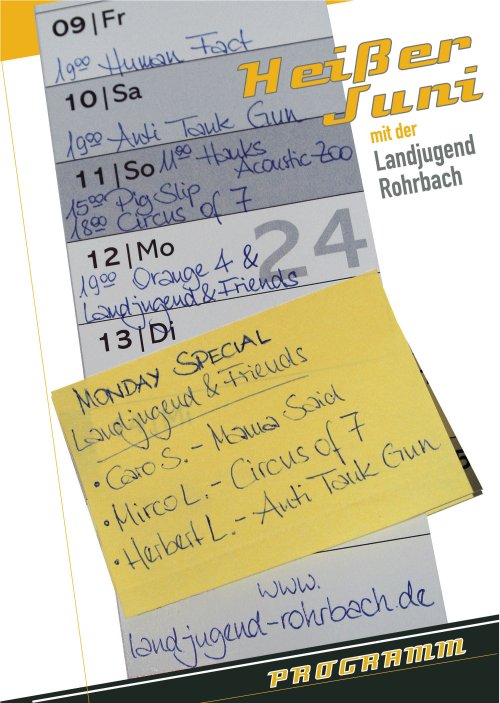 09|Fr
19⁰⁰ Human Fact
10|Sa
19⁰⁰ Anti Tank Gun
11|So 11⁰⁰ Hanks
Acoustic-Zoo
15⁰⁰ Pig Slip
18⁰⁰ Circus of 7
12|Mo
24
19⁰⁰ Orange 4 &
Landjugend & Friends
13|Di
Heißer
Juni
mit der
Landjugend
Rohrbach
MONDAY SPECIAL
Landjugend & Friends
• Caro S. - Mama Said
• Mirco L. - Circus of 7
• Herbert L. - Anti Tank Gun
www.
landjugend-rohrbach.de
PROGRAMM